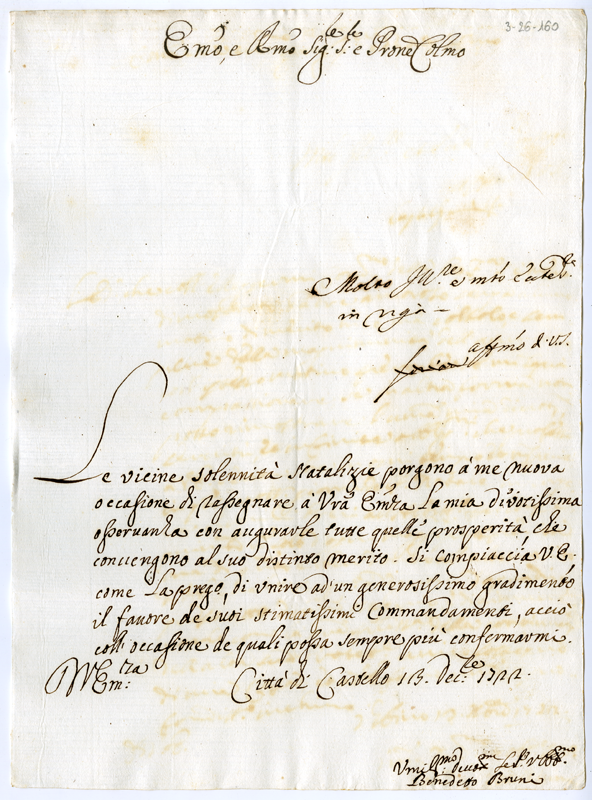 3-26-160
Emo, e Rmo Sig:re S:re e Prone Colmo
Molto Ill.re e mto
in
affmo d. V.S.
Le vicine solennità Natalizie porgono à me nuova
occasione di rassegnare à Vrã Emza La mia divotissima
osservanza con augurarle tutte quelle prosperità che
convengono al suo distinto merito. Si compiaccia V.E.
come La prego, di vnire ad un generosissimo gradimento
il favore de suoi stimatissimi Commandamenti, acciò
coll' occasione de quali possa sempre più confermarmi.
Di V. Em:za Città di Castello 15. dec.bre 1722.
Vmill.mo Deuot.mo Se.r Obb.mo
Benedetto Bruni